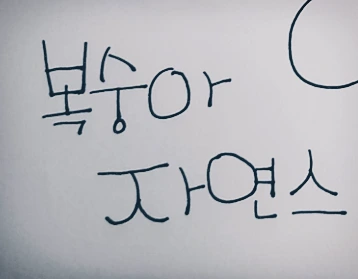 복숭아
자연스